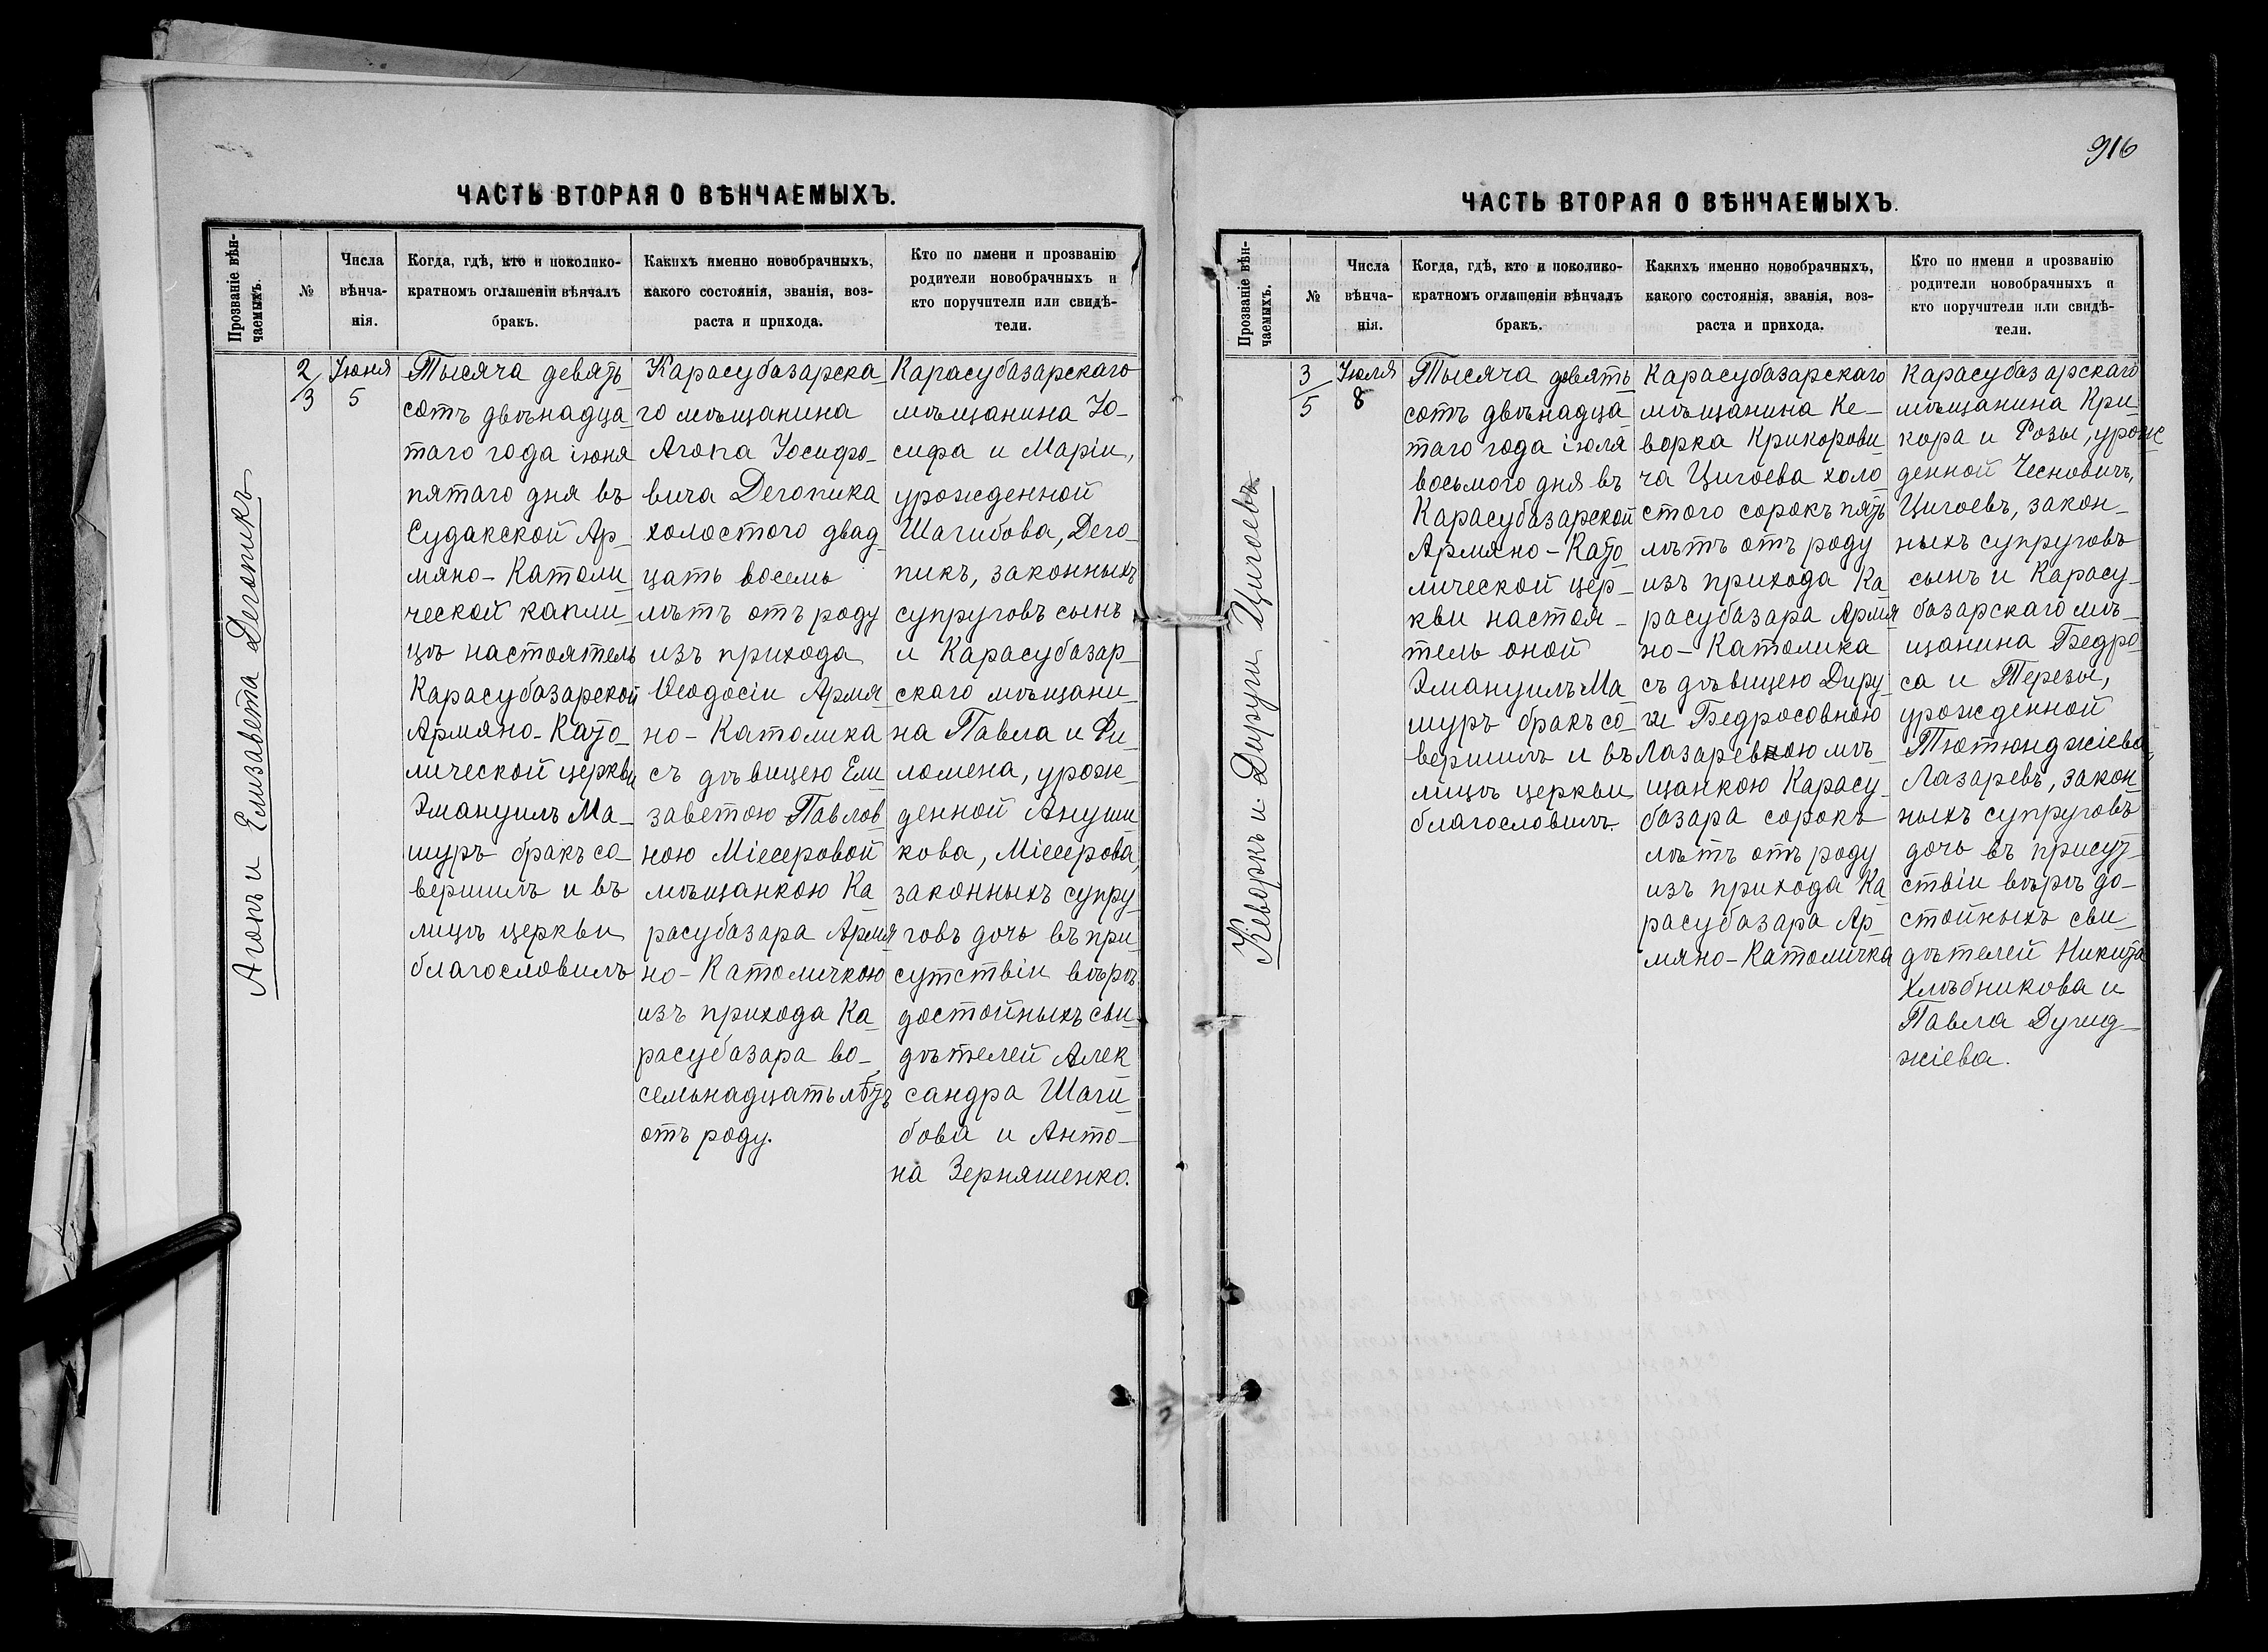 916
ЧАСТЬ ВТОРАЯ О ВѢНЧАЕМЫХЪ.
Прозваніе вѣн-
чаемыхъ.
№
Числа
вѣнча-
нія.
Когда, гдѣ, кто и поколико-
кратномъ оглашеніи вѣнчалъ
бракъ.
Какихъ именно новобрачныхъ,
какого состоянія, званія, воз-
раста и прихода.
Кто по имени и прозванію
родители новобрачныхъ и
кто поручители или свидѣ-
тели.
Агопъ и Елизавета Дегопикъ
2
3
Іюня
5
Тысяча девять
сотъ двѣнадца-
таго года іюня
пятаго дня въ
Судакской Ар-
мяно-Католи
ческой капли-
цѣ настоятель
Карасубазарской
Армяно-Като-
лической церкви
Эмануилъ Ма-
шуръ бракъ со-
вершилъ и въ
лицѣ церкви
благословилъ
Карасубазарска-
го мѣщанина
Агопа Іосифо-
вича Дегопика
холостого двад-
цать восемь
лѣтъ отъ роду
изъ прихода
Ѳеодосіи Армя-
но-Католика
съ дѣвицею Ели
заветою Павлов
ною Міссеровой
мѣщанкою Ка
расубазара Армя
но-Католичкою
изъ прихода Ка-
расубазара во-
семьнадцать лѣтъ
отъ роду.
Карасубазарскаго
мѣщанина Іо-
сифа и Маріи,
урожденной
Шагибова, Дего-
пикъ, законныхъ
супруговъ сынъ
и Карасубазар-
скаго мѣщани-
на Павла и Фи-
ломена, урож-
денной Ануши
кова, Міссерова,
законныхъ супру-
говъ дочь въ при-
сутствіи вѣро
достойныхъ сви-
дѣтелей Алек
сандра Шаги-
бова и Анто-
на Зерняшенко.
ЧАСТЬ ВТОРАЯ О ВѢНЧАЕМЫХЪ.
Прозваніе вѣн-
чаемыхъ.
№
Числа
вѣнча-
нія.
Когда, гдѣ, кто и поколико-
кратномъ оглашеніи вѣнчалъ
бракъ.
Какихъ именно новобрачныхъ,
какого состоянія, званія, воз-
раста и прихода.
Кто по имени и прозванію
родители новобрачныхъ и
кто поручители или свидѣ-
тели.
Кеворкъ и Дируги Цигоевъ
3
5
Іюля
8
Тысяча девять
сотъ двѣнадца-
таго года іюля
восьмого дня въ
Карасубазарской
Армяно-Като
лической цер-
кви настоя-
тель оной
Эмануилъ Ма
шуръ бракъ со-
вершилъ и въ
лицѣ церкви
благословилъ.
Карасубазарскаго
мѣщанина Ке-
ворка Крикорови-
ча Цигоева холо
стого сорокъ пять
лѣтъ отъ роду
изъ прихода Ка
расубазара Армя
но-Католика
съ дѣвицею Диру-
ги Бедросовною
Лазаревкою мѣ-
щанкою Карасу-
базара сорокъ
лѣтъ отъ роду
изъ прихода Ка
расубазара Ар-
мяно-Католичка
Карасубазарскаго
мѣщанина Кри-
кора и Розы, урож
денной Чесновичъ,
Цигоевъ, закон-
ныхъ супруговъ
сынъ и Карасу-
базарскаго мѣ-
щанина Бедро-
са и Терезы,
урожденной
Тютюнджіева,
Лазаревъ, закон
ныхъ супруговъ
дочь въ присут-
ствіи вѣро до-
стойныхъ сви-
дѣтелей Никита
Хлѣбникова и
Павла Дугид-
жіева.